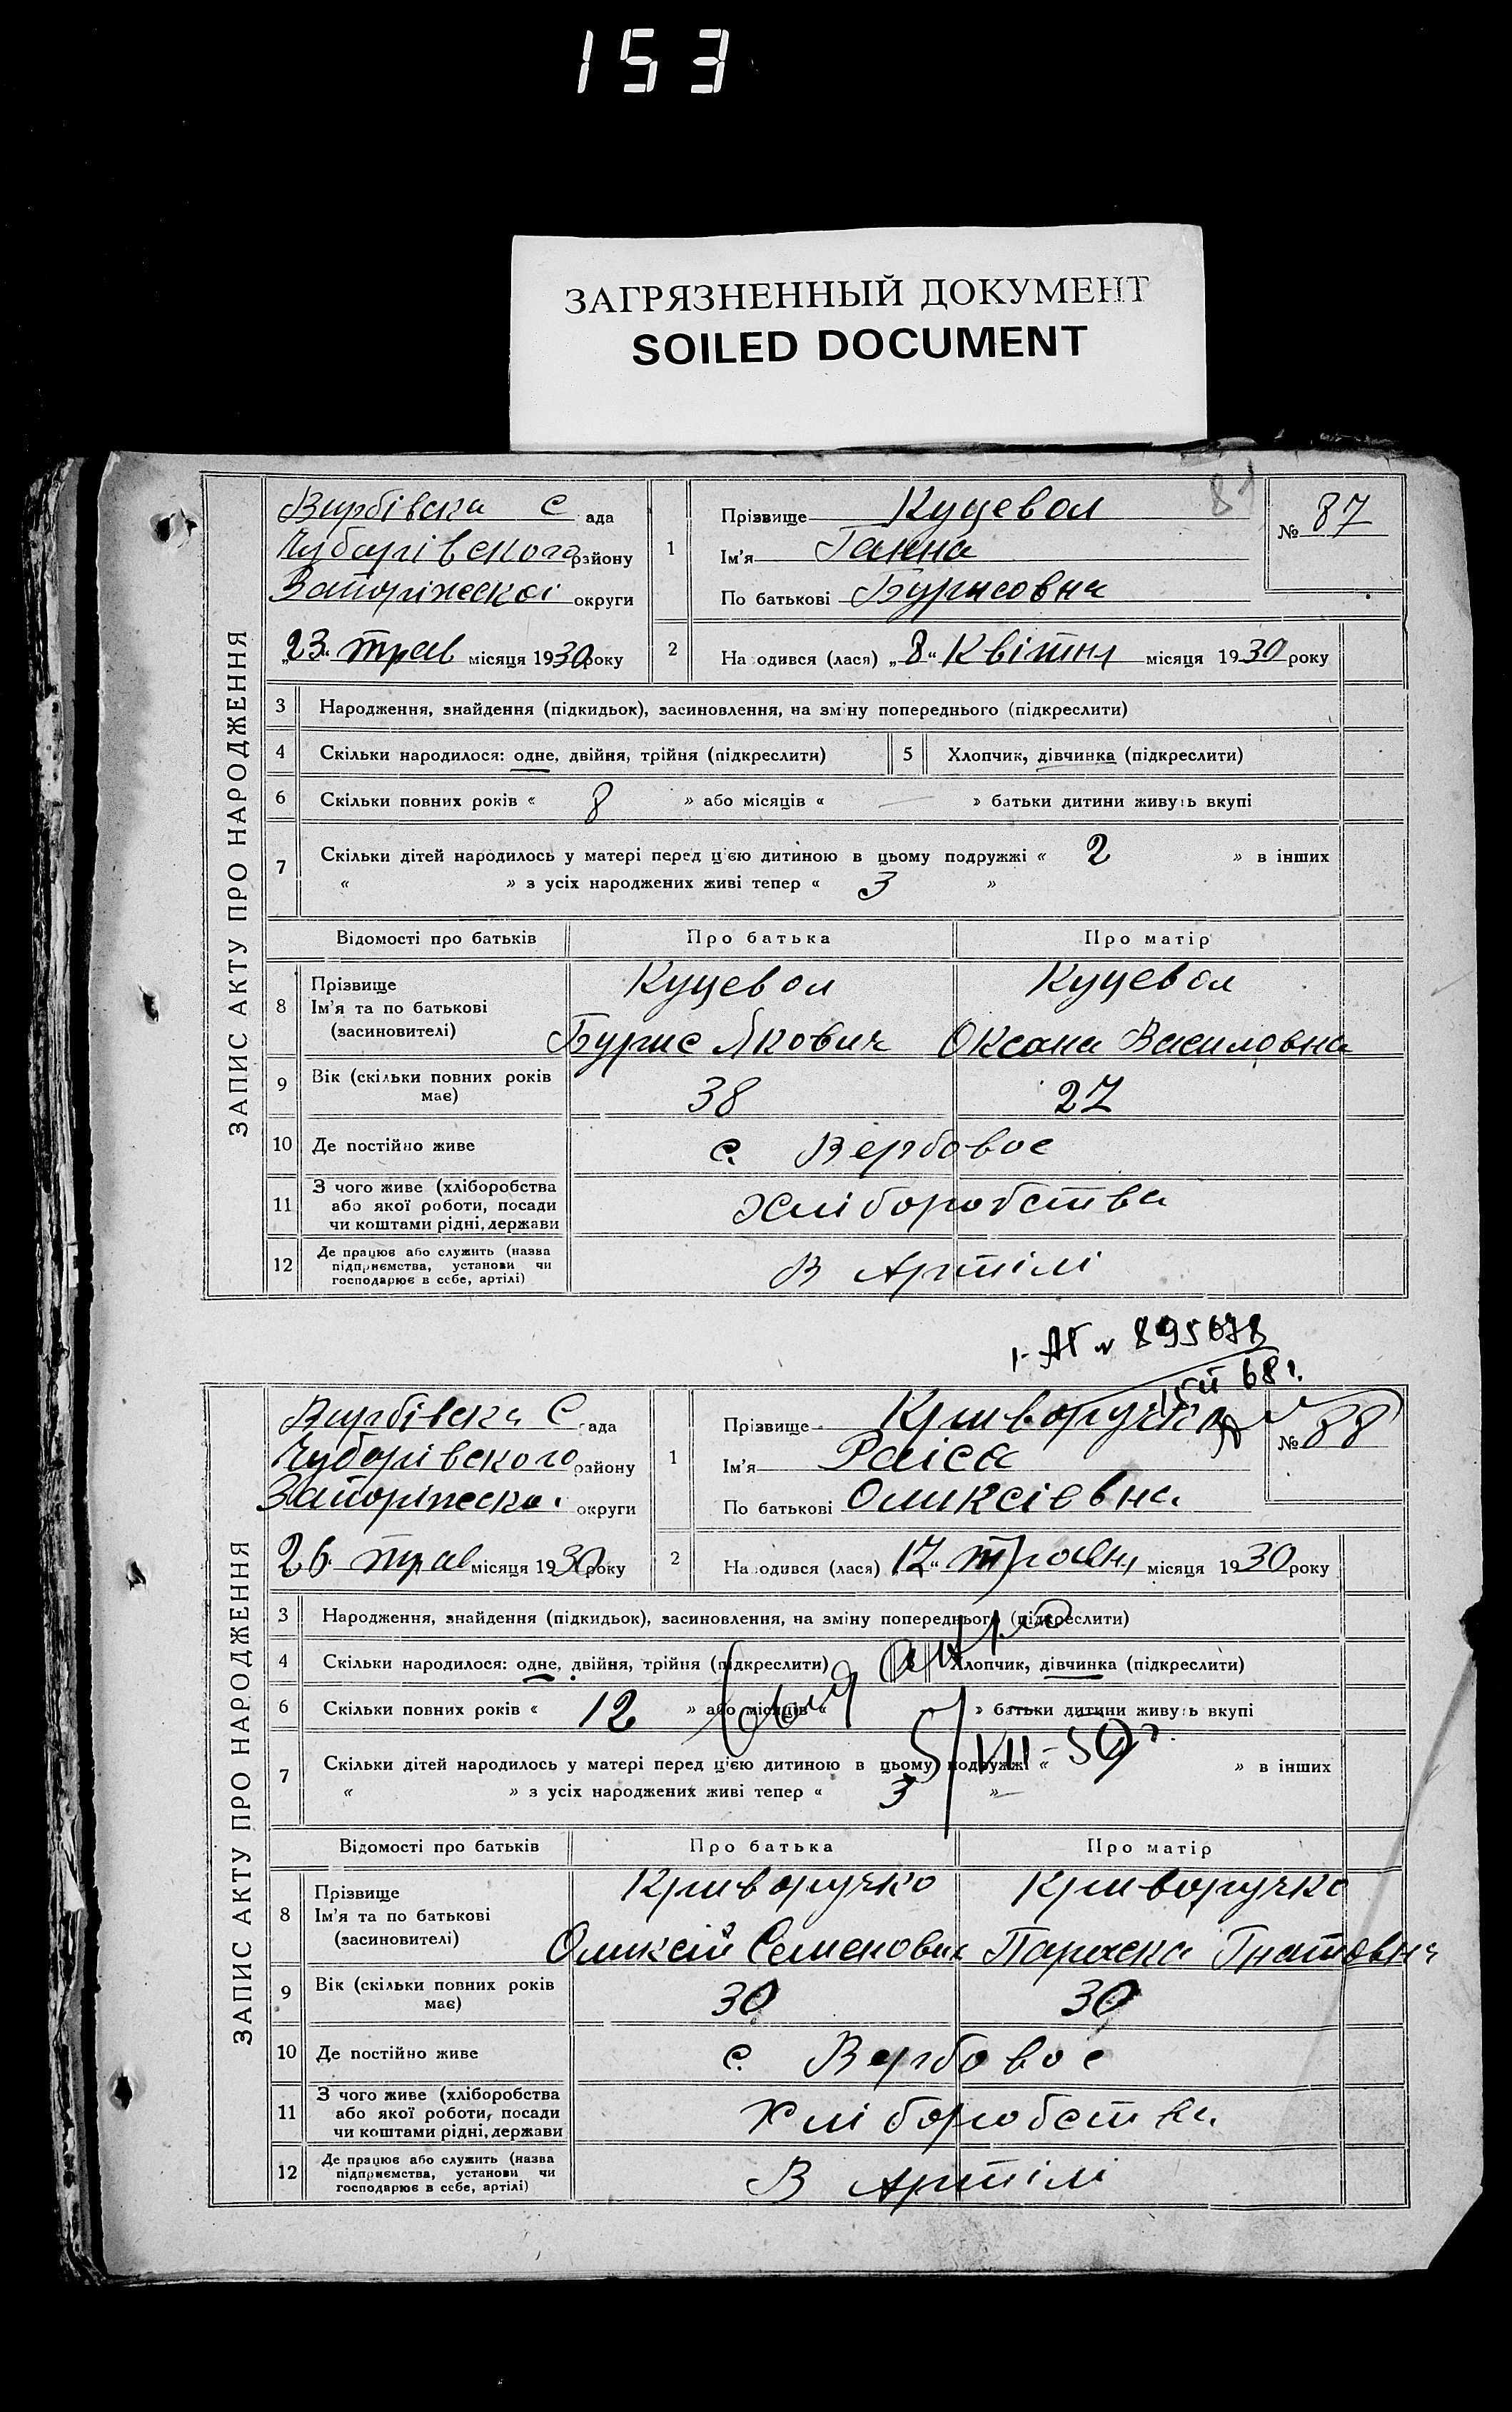 153
ЗАГРЯЗНЕННЫЙ ДОКУМЕНТ
SOILED DOCUMENT
81
ЗАПИС АКТУ ПРО НАРОДЖЕННЯ
Вирбівска С ада
Чубарівского району
Запоріжскоі округи
„23" трав місяця 1930 року
1 Прізвище Куцевол
Ім'я Ганна
По батькові Бурисовна
№ 87
2 На одився (лася) „8" Квітня місяця 1930 року
3 Народження, знайдення (підкидьок), засиновлення, на зміну попереднього (підкреслити)
4 Скільки народилося: одне, двійня, трійня (підкреслити) 5 Хлопчик, дівчинка (підкреслити)
6 Скільки повних років « 8 » або місяців « — » батьки дитини живуть вкупі
7 Скільки дітей народилось у матері перед ц'єю дитиною в цьому подружжі « 2 » в інших
« » з усіх народжених живі тепер « 3 »
Відомості про батьків Про батька Про матір
8 Прізвище Куцевол Куцевол
Ім'я та по батькові
(засиновителі) Бурис Якович Оксана Василовна
9 Вік (скільки повних років має) 38 27
10 Де постійно живе с. Вербовое
11 З чого живе (хліборобства
або якої роботи, посади
чи коштами рідні, держави Хліборобства
12 Де працює або служить (назва
підприємства, установи чи
господарює в себе, артілі) В Артілі
68 г.
ЗАПИС АКТУ ПРО НАРОДЖЕННЯ
Вирбівска С ада
Чубарівского району
Запоріжскоі округи
26 трав місяця 1930 року
1 Прізвище Криворучко
Ім'я Раіса
По батькові Оликсіевна
№ 88
2 На одився (лася) 17" травня місяця 1930 року
3 Народження, знайдення (підкидьок), засиновлення, на зміну попереднього (підкреслити)
4 Скільки народилося: одне, двійня, трійня (підкреслити) Хлопчик, дівчинка (підкреслити)
6 Скільки повних років « 12 » або місяців « » батьки дитини живуть вкупі
5/VII-50 г.
7 Скільки дітей народилось у матері перед ц'єю дитиною в цьому подружжі « » в інших
« » з усіх народжених живі тепер « 3 »
Відомості про батьків Про батька Про матір
8 Прізвище Криворучко Криворучко
Ім'я та по батькові
(засиновителі) Оликсій Семенович Параска Гнатовна
9 Вік (скільки повних років має) 30 30
10 Де постійно живе с. Вербовое
11 З чого живе (хліборобства
або якої роботи, посади
чи коштами рідні, держави Хліборобства
12 Де працює або служить (назва
підприємства, установи чи
господарює в себе, артілі) В Артілі